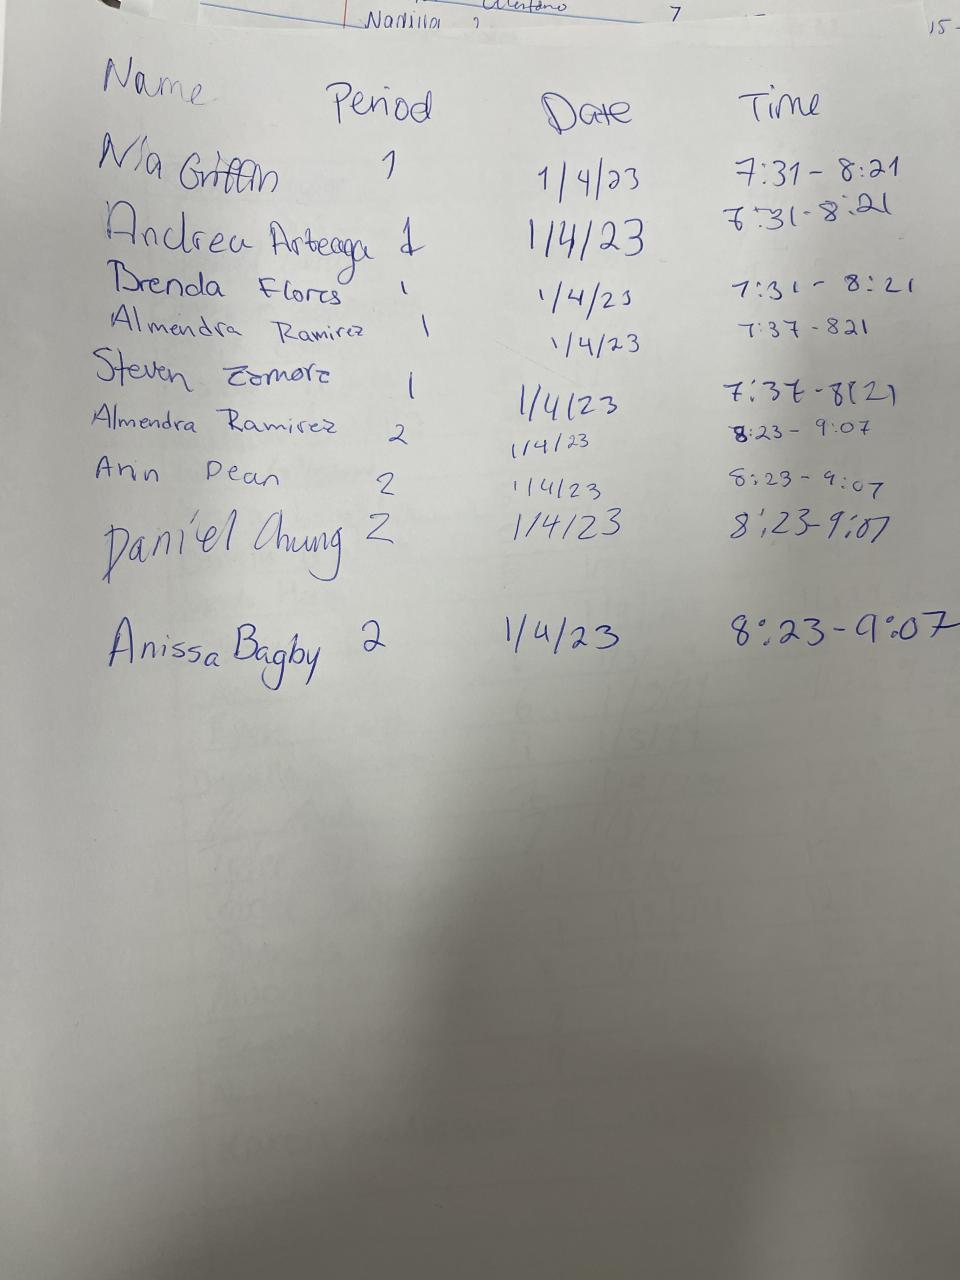 Nadilla 2 7 15-
Name Period Date Time
Nia Griffin 1 1/4/23 7:31 - 8:21
Andrea Arteaga 1 1/4/23 7:31 - 8:21
Brenda Flores 1 1/4/23 7:31 - 8:21
Almendra Ramirez 1 1/4/23 7:37 - 821
Steven 1 1/4/23 7:37 - 8(21
Almendra Ramirez 2 1/4/23 8:23 - 9:07
Arin Dean 2 1/4/23 8:23 - 9:07
Daniel Chung 2 1/4/23 8:23-9:07
Anissa Bagby 2 1/4/23 8:23-9:07